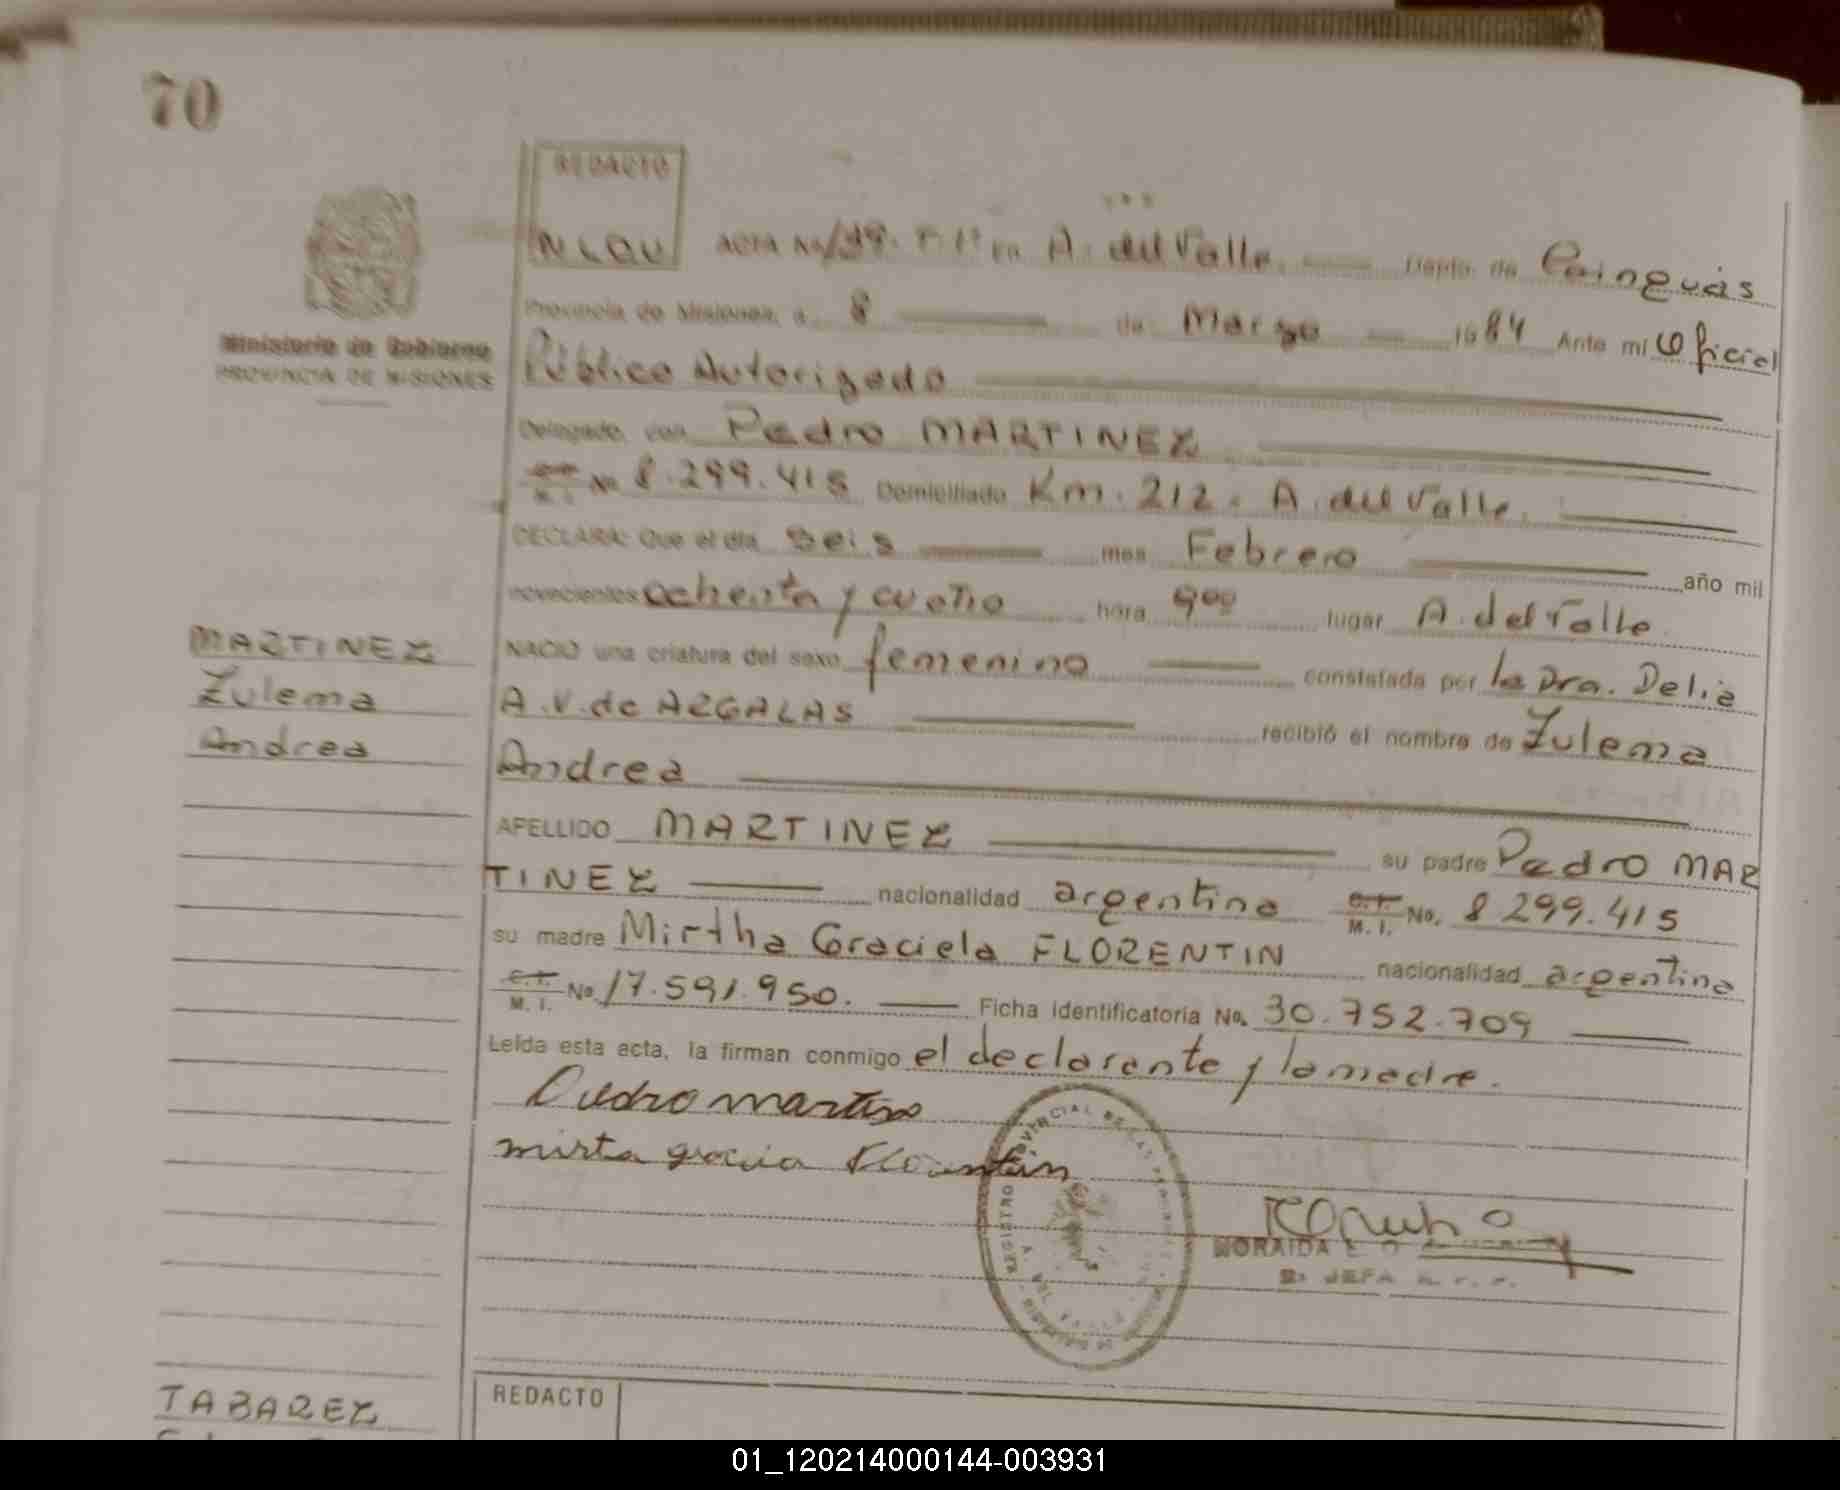 70
REDACTO
ACTA No 139. T. 1º en A. del Valle. Depto. de Cainguás
Ministerio de Gobierno
PROVINCIA DE MISIONES
Provincia de Misiones, a 8 de Marzo 1984 Ante mi Oficial
Público Autorizado
Delegado, con Pedro MARTINEZ
C.I. M.I. No 8.299.415 Domiciliado Km. 212. A. del Valle.
DECLARA: Que el día seis mes Febrero año mil
novecientos ochenta y cuatro hora 9 00 lugar A. del Valle.
MARTINEZ
Zulema
Andrea
NACIO una criatura del sexo femenino constatada por la Dra. Delia
A.V. de ARGALAS recibió el nombre de Zulema
Andrea
APELLIDO MARTINEZ su padre Pedro MAR
TINEZ nacionalidad argentina C.I. M.I. No. 8 299.415
su madre Mirtha Graciela FLORENTIN nacionalidad argentina
C.I. M.I. No. 17.591.950. Ficha identificatoria No. 30.752.709
Leída esta acta, la firman conmigo el declarante y la madre.
Pedro martinez
mirta FLorentin
REGISTRO PROVINCIAL DE LAS PERSONAS
MORAIDA E. O
JEFA
TABAREZ
REDACTO
01_120214000144-003931